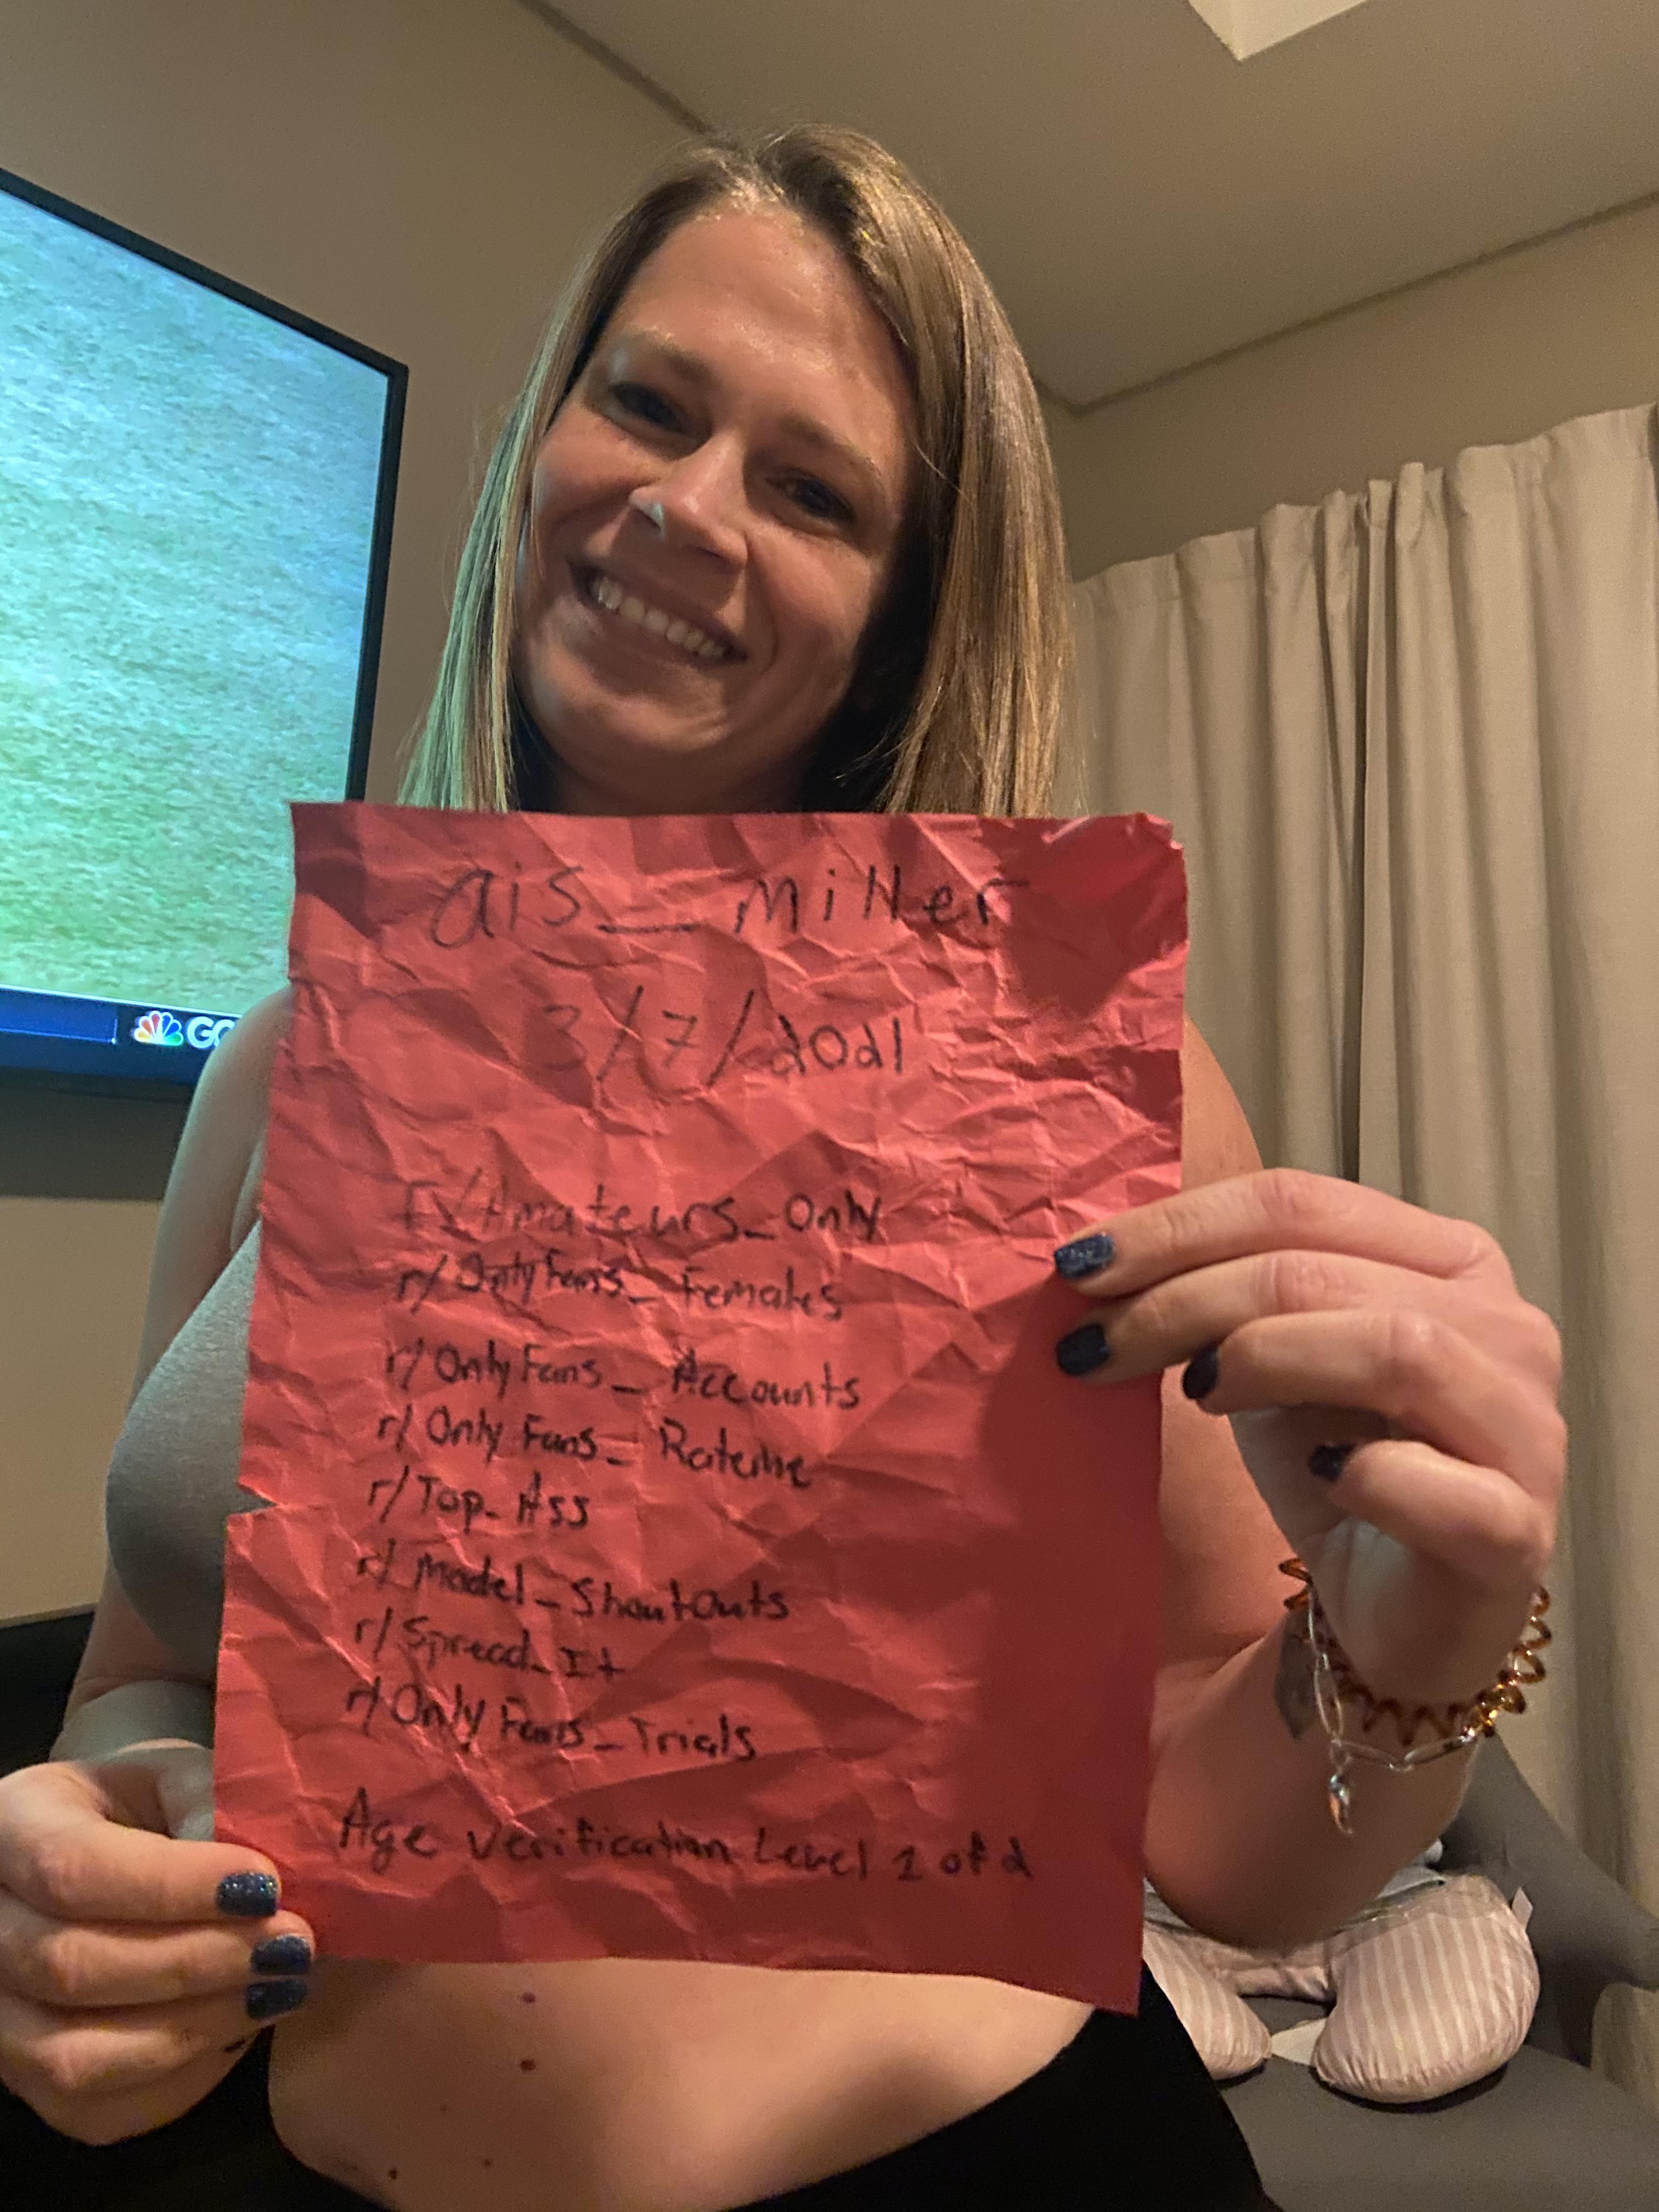 GO
ais_miller
3/7/2021
r/Amateurs_Only
r/OnlyFans_Females
r/OnlyFans_Accounts
r/OnlyFans_Rateme
r/Top_Ass
r/Model_ShoutOuts
r/Spread_It
r/OnlyFans_Trials
Age verification Level 1 of 2